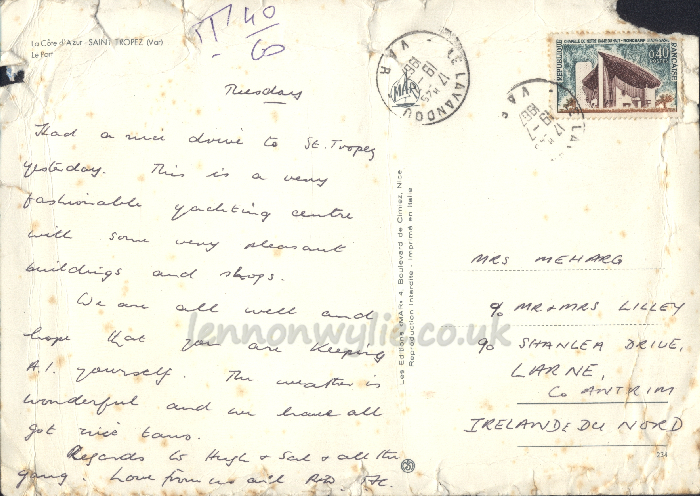 La Côte d'Azur - SAINT TROPEZ (Var)
Le Port
40
60
Tuesday
Had a nice drive to St. Tropez
yesterday. This is a very
fashionable yachting centre
with some very pleasant
buildings and shops.
We are all well and
hope that you are keeping
A.1. yourself. The weather is
wonderful and we have all
got nice tans.
Regards to Hugh & & all the
gang. Love from us all
Les Editions «MAR» 4, Boulevard de Cimiez, Nice
Reproduction Interdite - Imprimé en Italie
LE LAVANDOU
VAR
MAR
REPUBLIQUE FRANÇAISE
0,40
LE LAVANDOU
VAR
MRS MEHARG
c/o MR & MRS LILLEY
90 SHANLEA DRIVE,
LARNE,
Co ANTRIM
IRELANDE DU NORD
234
lennonwylie.co.uk